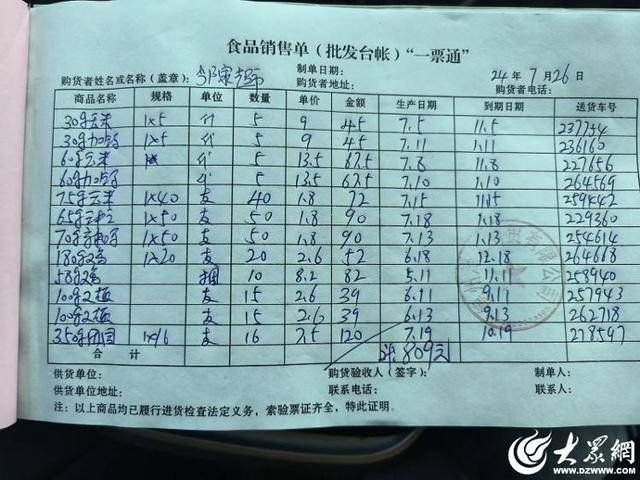 食品销售单（批发台帐）“一票通”
购货者姓名或名称（盖章）： 制单日期： 24 年 7 月 26 日
购货者地址： 购货者电话：
商品名称 规格 单位 数量 单价 金额 生产日期 到期日期 送货车号
30g玉米 1x5 个 5 9 45 7.5 11.5 237754
30g加钙 1x5 个 5 9 45 7.11 11.11 236160
60g玉米 个 5 13.5 67.5 7.8 11.8 227656
60g加钙 个 5 13.5 67.5 7.10 11.10 264569
75g玉米 1x40 支 40 1.8 72 7.15 259442
65g 1x50 支 50 1.8 90 7.18 1.18 229360
70g 1x50 支 50 1.8 90 7.13 1.13 254614
180g 1x20 支 20 2.6 52 6.18 12.18 264668
58g 捆 10 8.2 82 5.11 11.11 258940
100g 支 15 2.6 39 6.11 9.11 257943
100g 支 15 2.6 39 6.13 9.13 262718
350g 支 16 7.5 120 7.19 10.19 278597
合 计 809元
供货单位： 购货验收人（签字）： 制单人：
供货单位地址： 联系电话： 联系电话：
注：以上商品均已履行进货检查法定义务，索验票证齐全，特此证明。
大眾網
WWW.DZWWW.COM